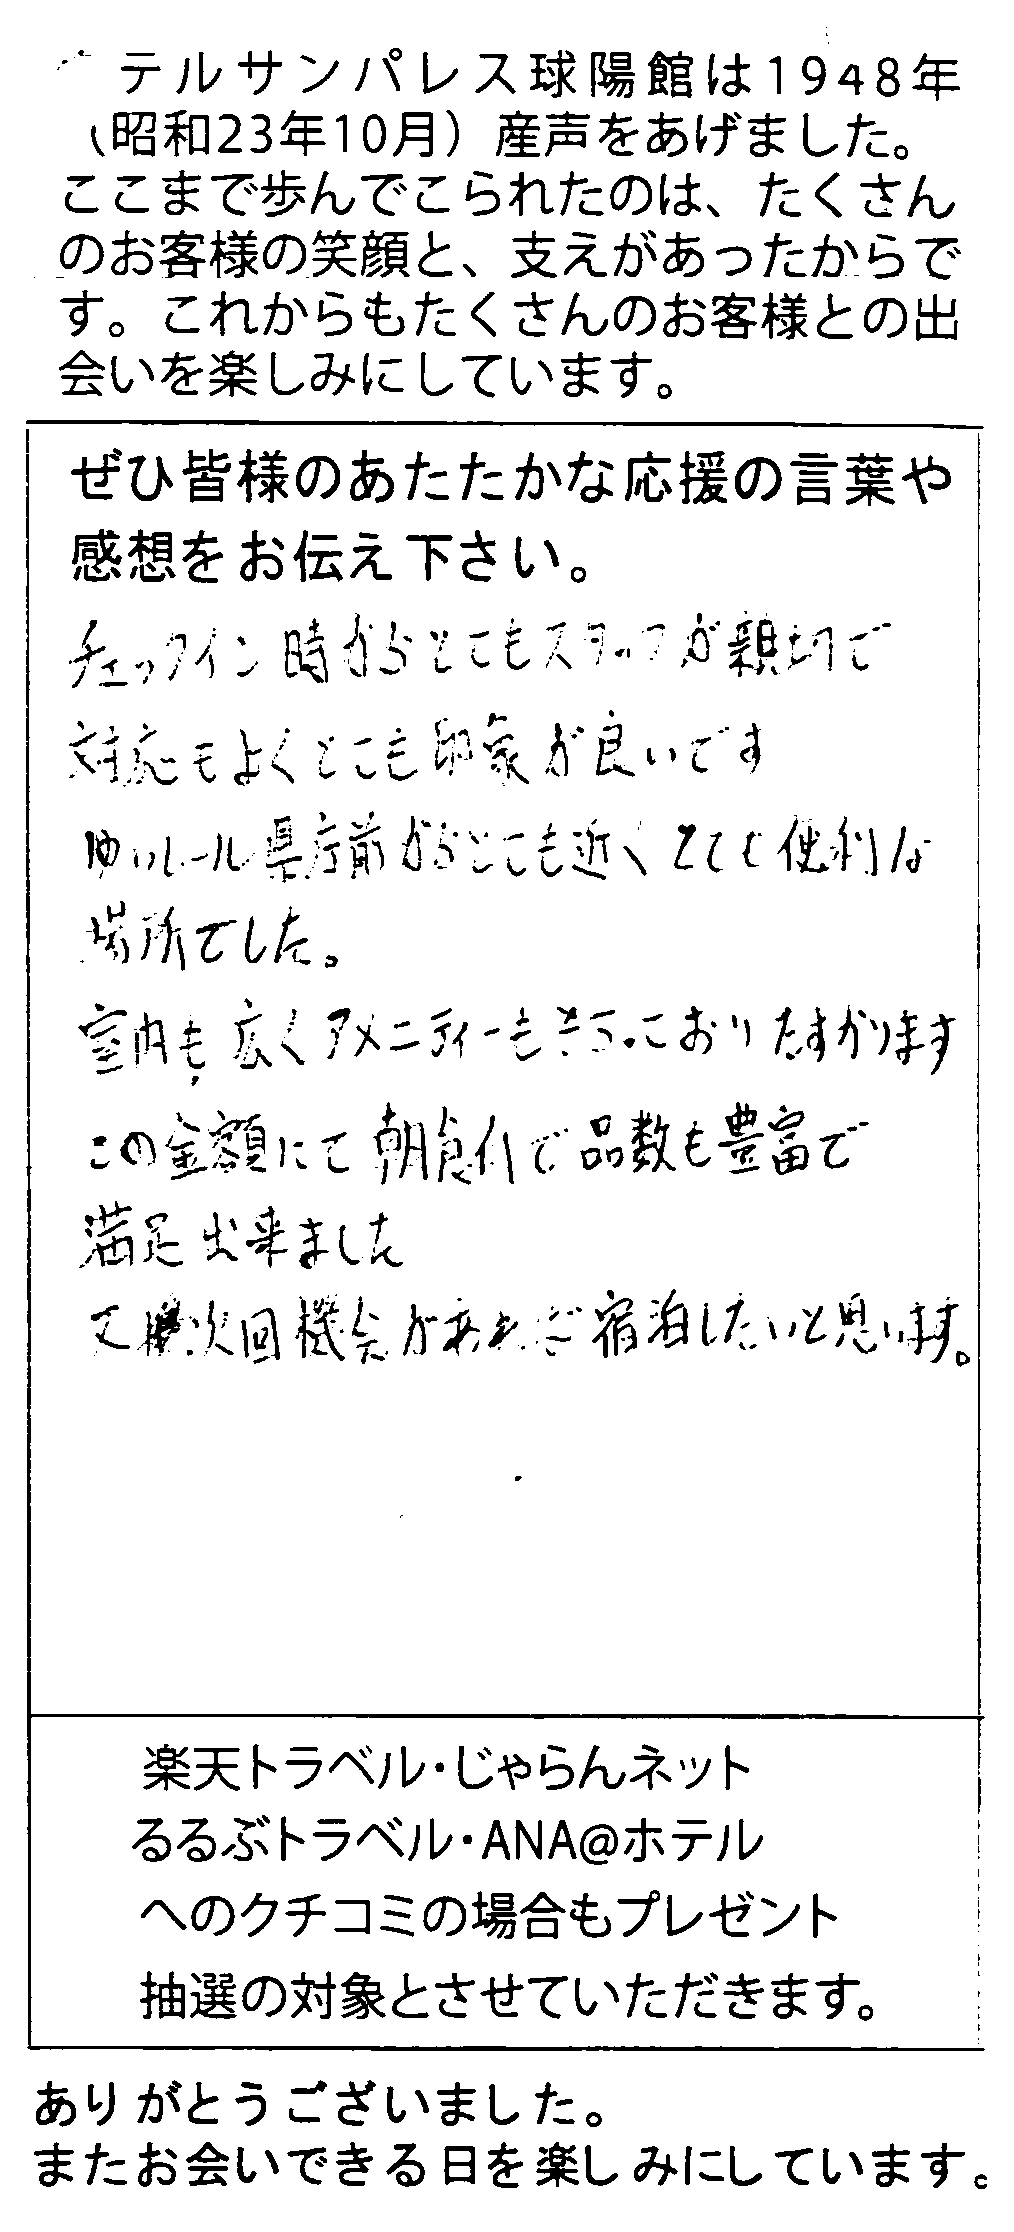 テルサンパレス球陽館は1948年
(昭和23年10月)産声をあげました。
ここまで歩んでこられたのは、たくさん
のお客様の笑顔と、支えがあったからで
す。これからもたくさんのお客様との出
会いを楽しみにしています。
ぜひ皆様のあたたかな応援の言葉や
感想をお伝え下さい。
チェックイン時からとてもスタッフが親切で
対応もよくとても印象が良いです
ゆいレール県庁前からとても近くとても便利な
場所でした。
室内も広くアメニティーもそろっており たすかります
この金額にて朝食付で品数も豊富で
満足出来ました
又次回機会があれば宿泊したいと思います。
楽天トラベル・じゃらんネット
るるぶトラベル・ANA@ホテル
へのクチコミの場合もプレゼント
抽選の対象とさせていただきます。
ありがとうございました。
またお会いできる日を楽しみにしています。